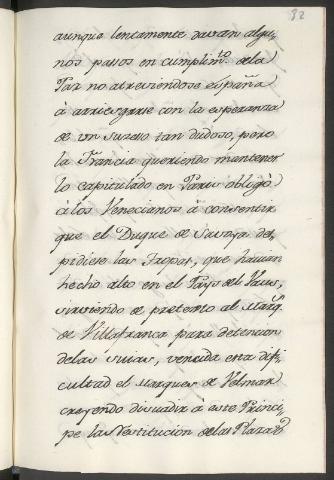 92
aunque lentamente davan algu-
nos pasos en cumplim.to dela
Paz no atreviendose españa
à arriesgarse con la esperanza
de un suceso tan dudoso, pero
la Francia queriendo mantener
lo capitulado en Paris obligò
àlos Venecianos à consentir
que el Duque de Savoya des-
pidiese las Tropas, que havian
hecho alto en el Pays del Vaus,
sirviendo de pretexto al Marq.s
de Villafranca para detencion
delas suias, vencida esta difi-
cultad el Marques de Velmar
creyendo disuadir à este Princi-
pe la Restitucion delas Plazas